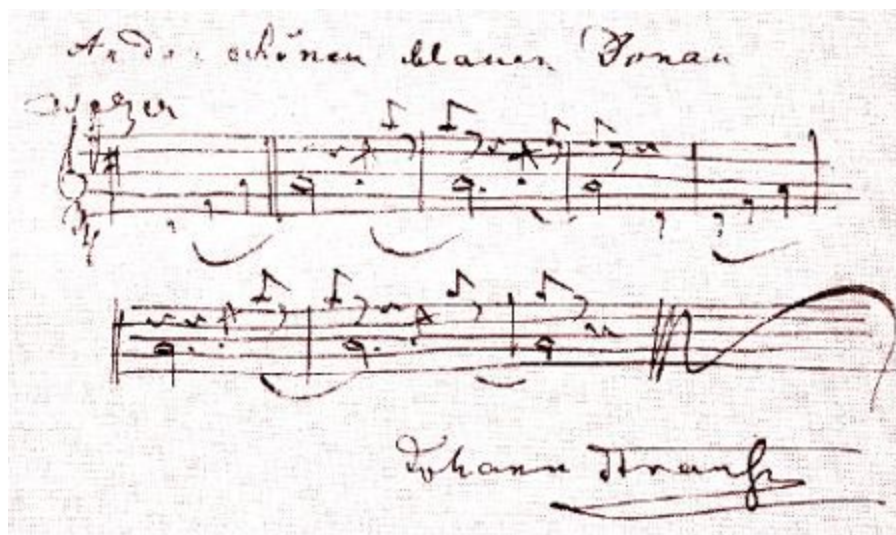 An der schönen blauen Donau
Walzer
Johann Strauß